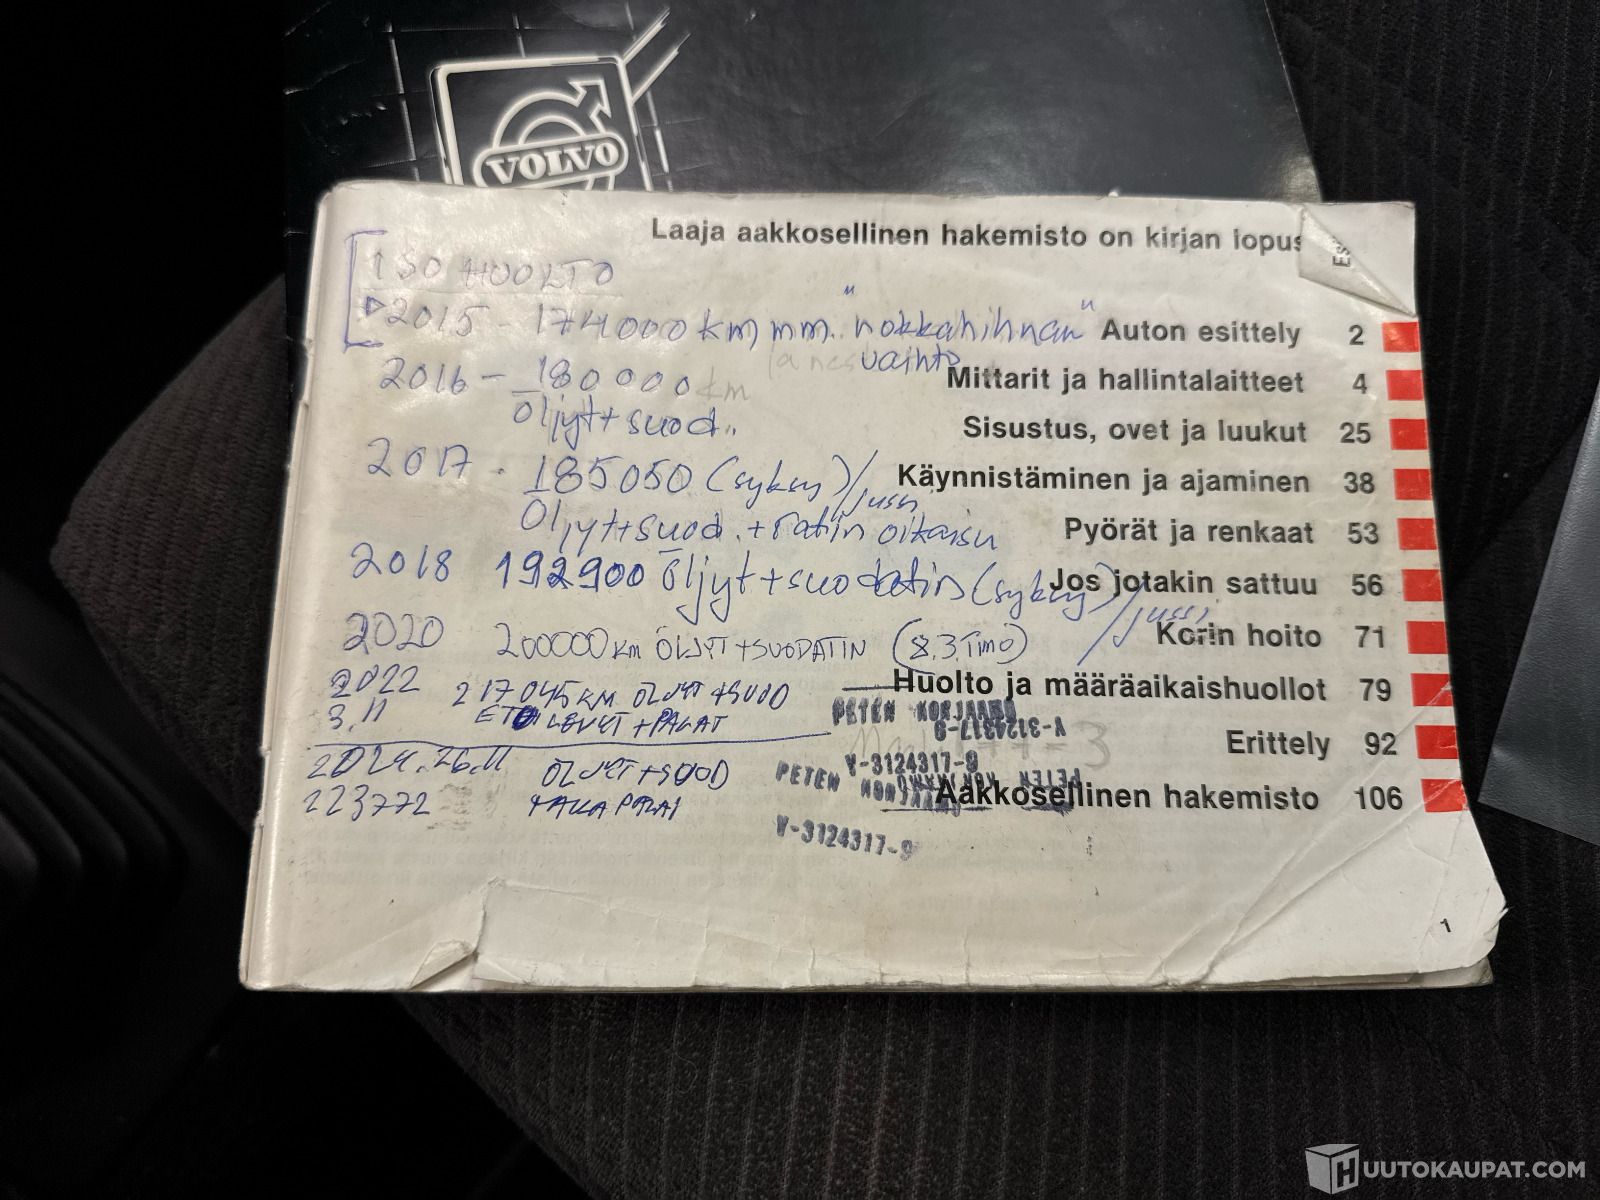 VOLVO
Laaja aakkosellinen hakemisto on kirjan lopus
ISO HUOLTO
2015 - 174000 km mm. "nokkahihnan"
vaihto
2016 - 180000 km
Öljyt + suod.
2017 - 185050 (syksy) / Jussi
Öljyt + suod. + ratin oikaisu
2018 192900 Öljyt + suodatin (syksy) / Jussi
2020 200000 KM ÖLJYT + SUODATIN (8.3. TIMO)
2022 217045 KM ÖLJYT + SUOD
3.11 ETU LEVYT + PALAT
2024.26.11 ÖLJYT + SUOD
223772 TAKA PALAT
Auton esittely 2
Mittarit ja hallintalaitteet 4
Sisustus, ovet ja luukut 25
Käynnistäminen ja ajaminen 38
Pyörät ja renkaat 53
Jos jotakin sattuu 56
Korin hoito 71
Huolto ja määräaikaishuollot 79
Erittely 92
Aakkosellinen hakemisto 106
PETEN KORJAAMO
Y-3124317-9
Y-3124317-9
PETEN KORJAAMO
PETEN KORJAAMO
Y-3124317-9
1
HUUTOKAUPAT.COM